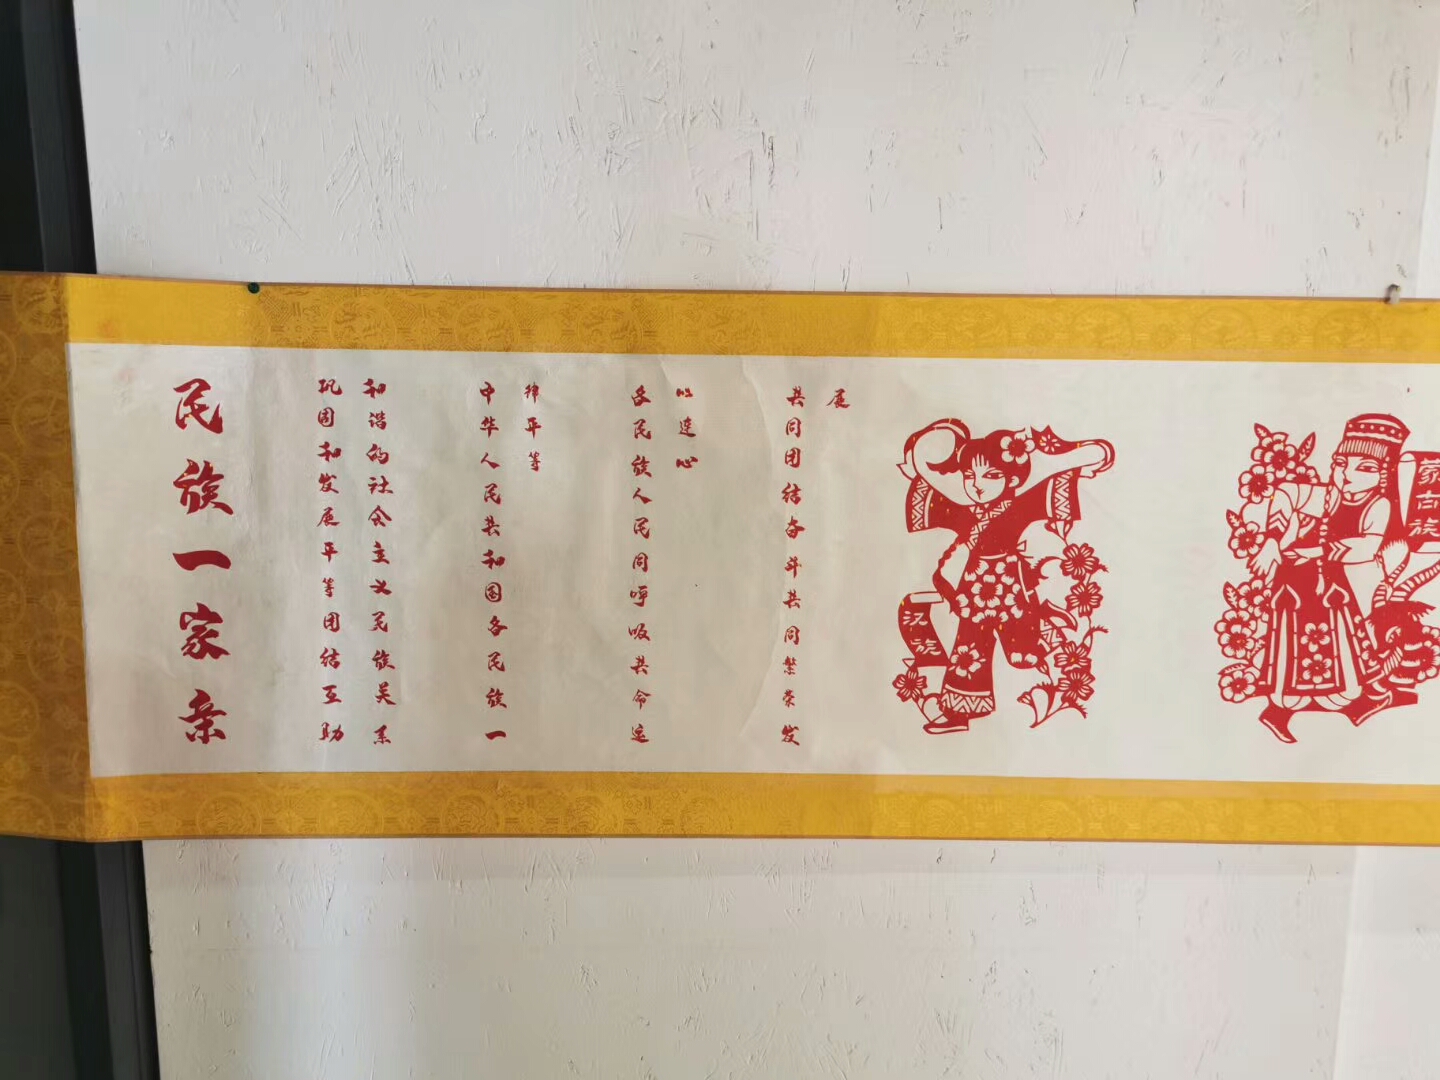 民族一家亲
巩固和发展平等团结互助
和谐的社会主义民族关系
中华人民共和国各民族一
律平等
各民族人民同呼吸共命运
心连心
共同团结奋斗共同繁荣发
展
汉族
蒙古族